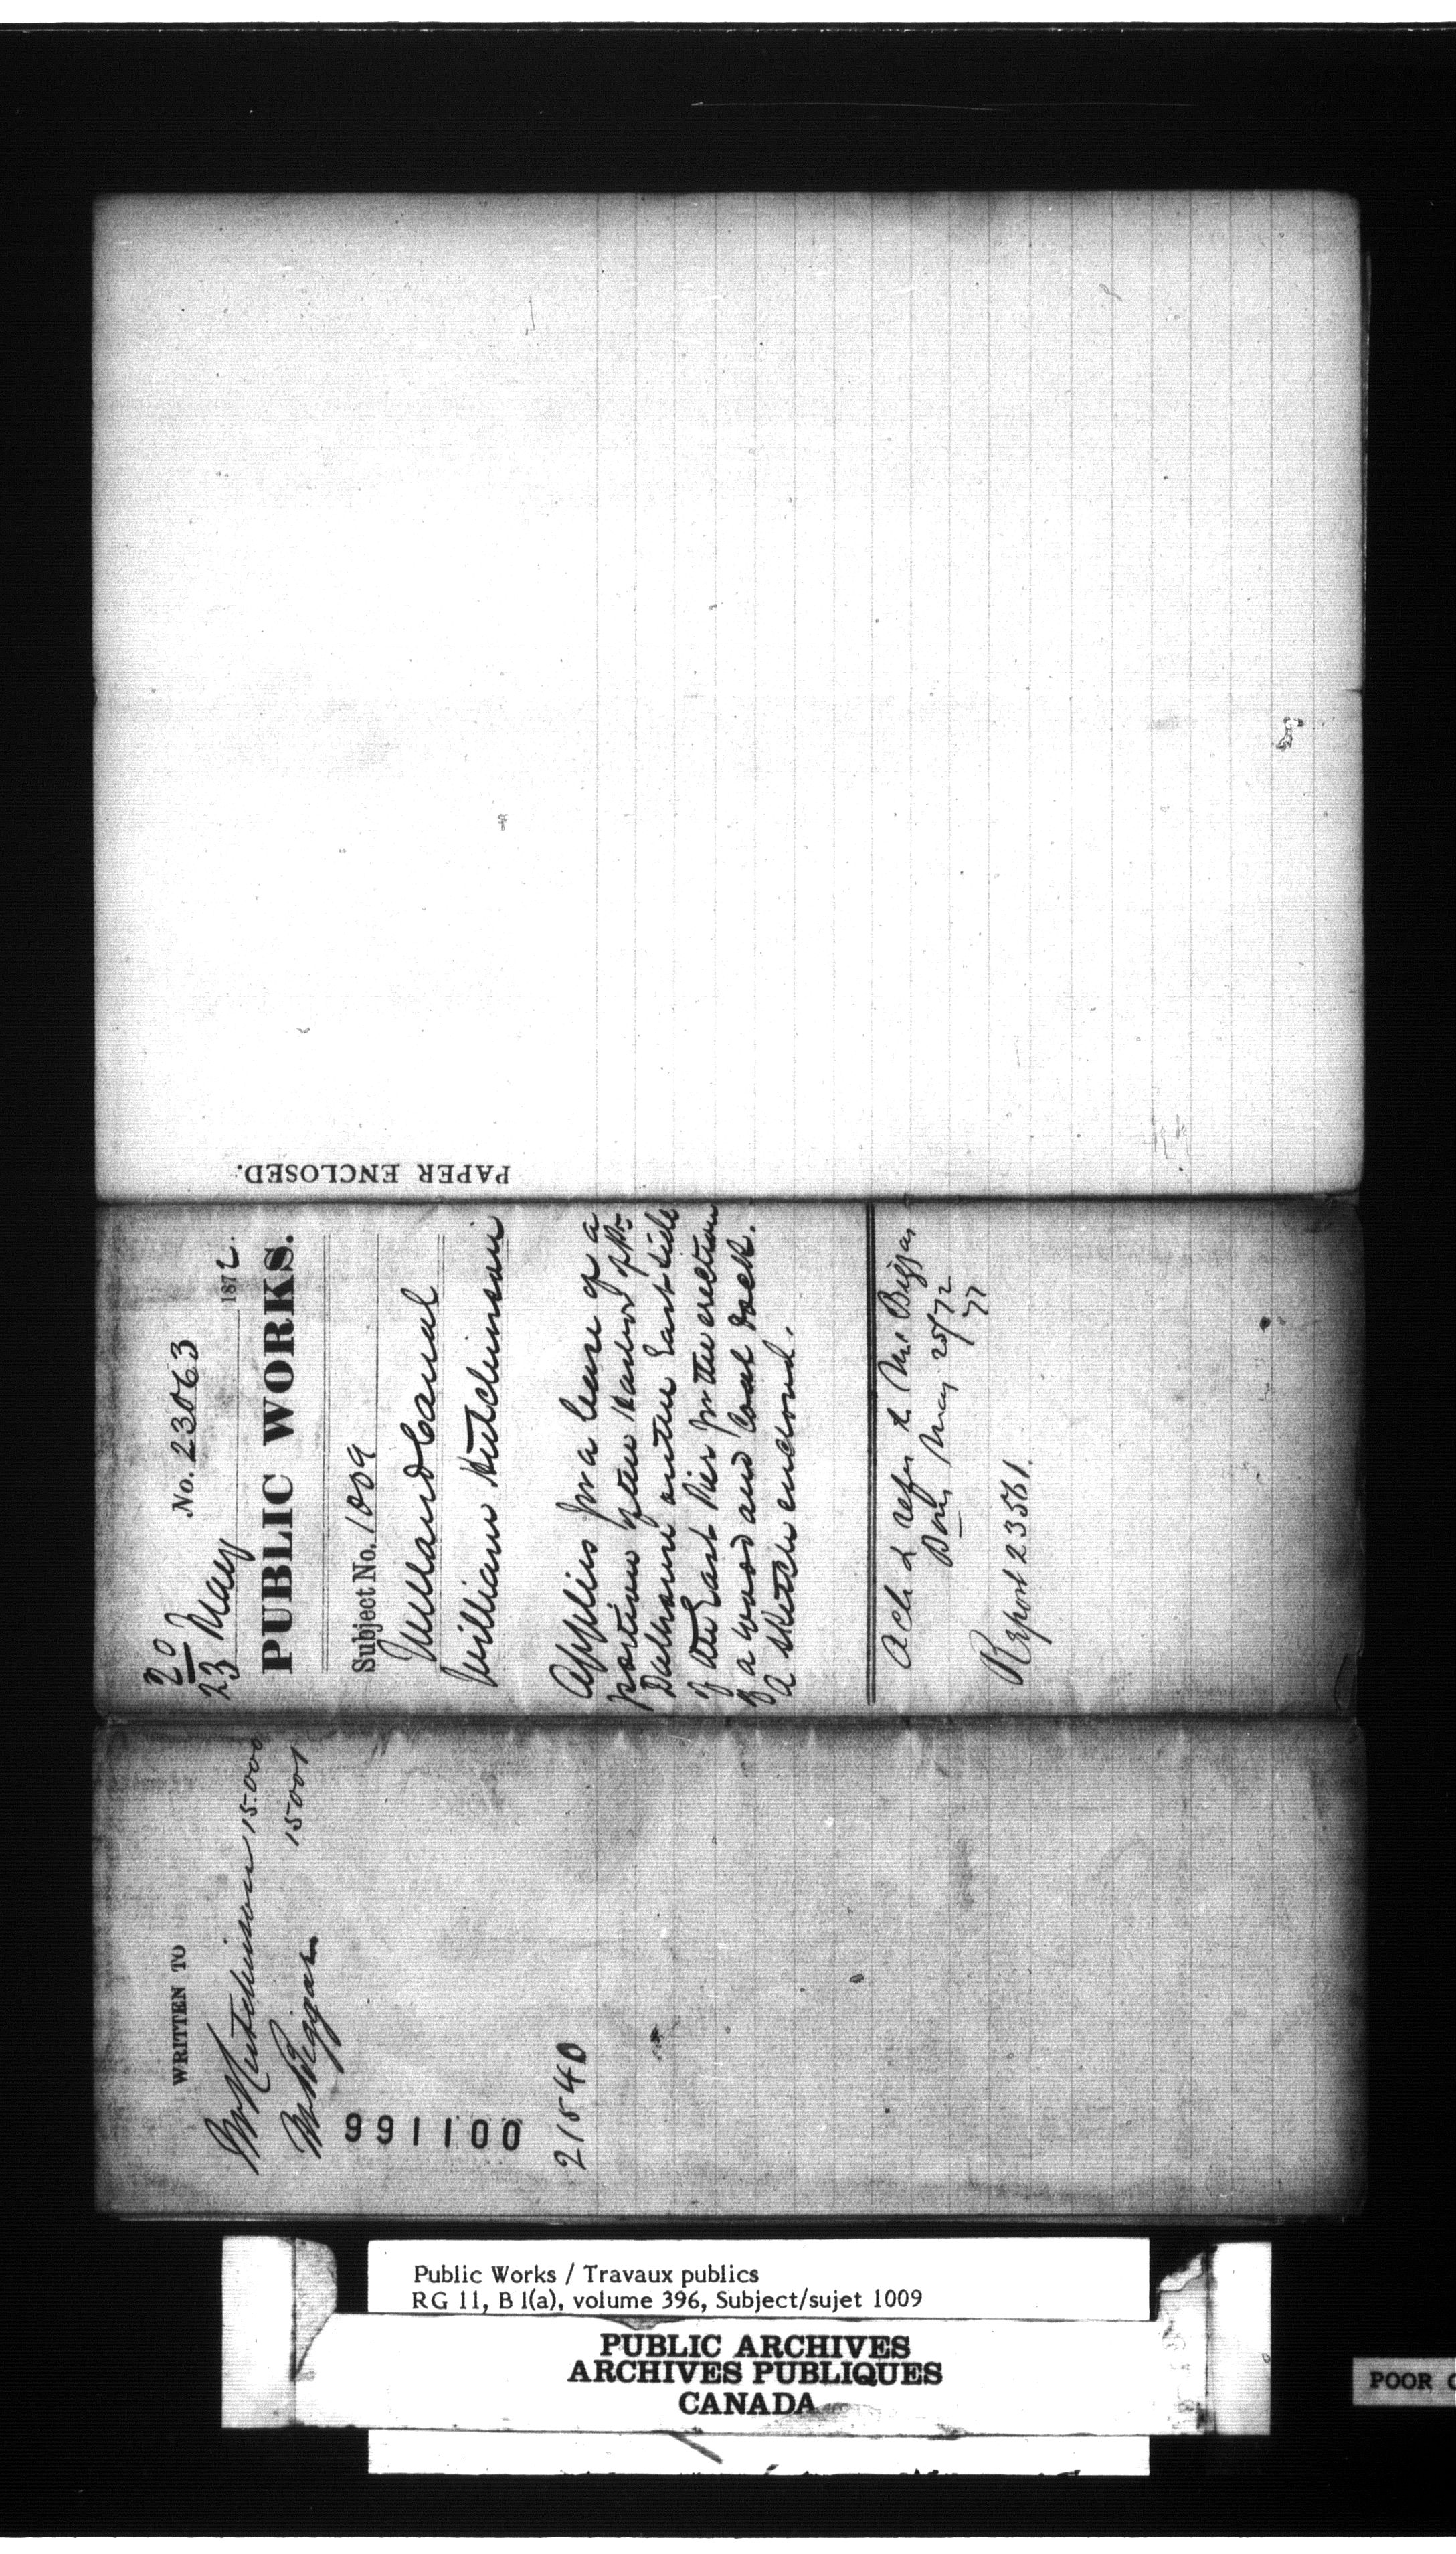 PAPER ENCLOSED.
20
23 May
No. 23063
1872.
PUBLIC WORKS.
Subject No. 1009
Welland Canal
William Hutchinson
Applies for a lease of a
portion of the Harbor of Pt.
Dalhousie on the East side
of the East Pier for the erection
of a wood and coal dock.
A sketch enclosed.
Ack & refer to Mr. Biggar
Done May 25/72
Report 23561.
WRITTEN TO
Mr Hutchinson 15.000
Mr Biggar 15001
991100
21540
Public Works / Travaux publics
RG 11, B 1(a), volume 396, Subject/sujet 1009
PUBLIC ARCHIVES
ARCHIVES PUBLIQUES
CANADA
POOR